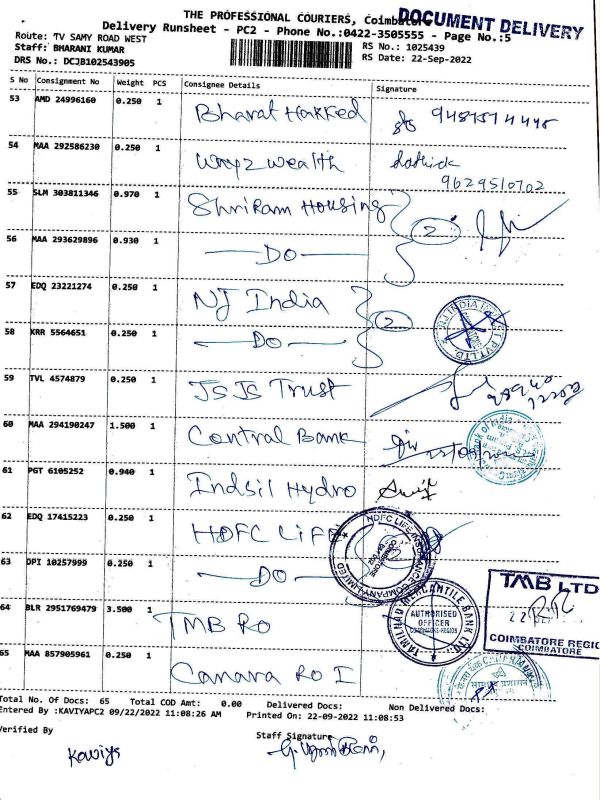 THE PROFESSIONAL COURIERS, Coimbatore
DOCUMENT DELIVERY
Delivery Runsheet - PC2 - Phone No.:0422-3505555 - Page No.:5
Route: TV SAMY ROAD WEST
RS No.: 1025439
Staff: BHARANI KUMAR
RS Date: 22-Sep-2022
DRS No.: DCJB102543905
S No Consignment No Weight PCS Consignee Details Signature
53 AMD 24996160 0.250 1 Bharat Hakked
54 MAA 292586230 0.250 1 Wayz Wealth
9629510702
55 SLM 303811346 0.970 1 Shriram Housing
2
56 MAA 293629896 0.930 1 DO
57 EDQ 23221274 0.250 1 NJ India
2
58 KRR 5564651 0.250 1 DO
59 TVL 4574879 0.250 1 JSJS Trust
60 MAA 294190247 1.500 1 Central Bank
61 PGT 6105252 0.940 1 Indsil Hydro
62 EDQ 17415223 0.250 1 HDFC Life
HDFC LIFE INSURANCE COMPANY LIMITED
COIMBATORE
63 DPI 10257999 0.250 1 DO
TMB LTD
64 BLR 2951769479 3.500 1 TMB RO
TAMILNAD MERCANTILE BANK LTD.
AUTHORISED
OFFICER
COIMBATORE-REGION
COIMBATORE REGIO
COIMBATORE
65 MAA 857905961 0.250 1 Canara RO I
Total No. Of Docs: 65 Total COD Amt: 0.00 Delivered Docs: Non Delivered Docs:
Entered By :KAVIYAPC2 09/22/2022 11:08:26 AM Printed On: 22-09-2022 11:08:53
Verified By
Staff Signature
Kaviys